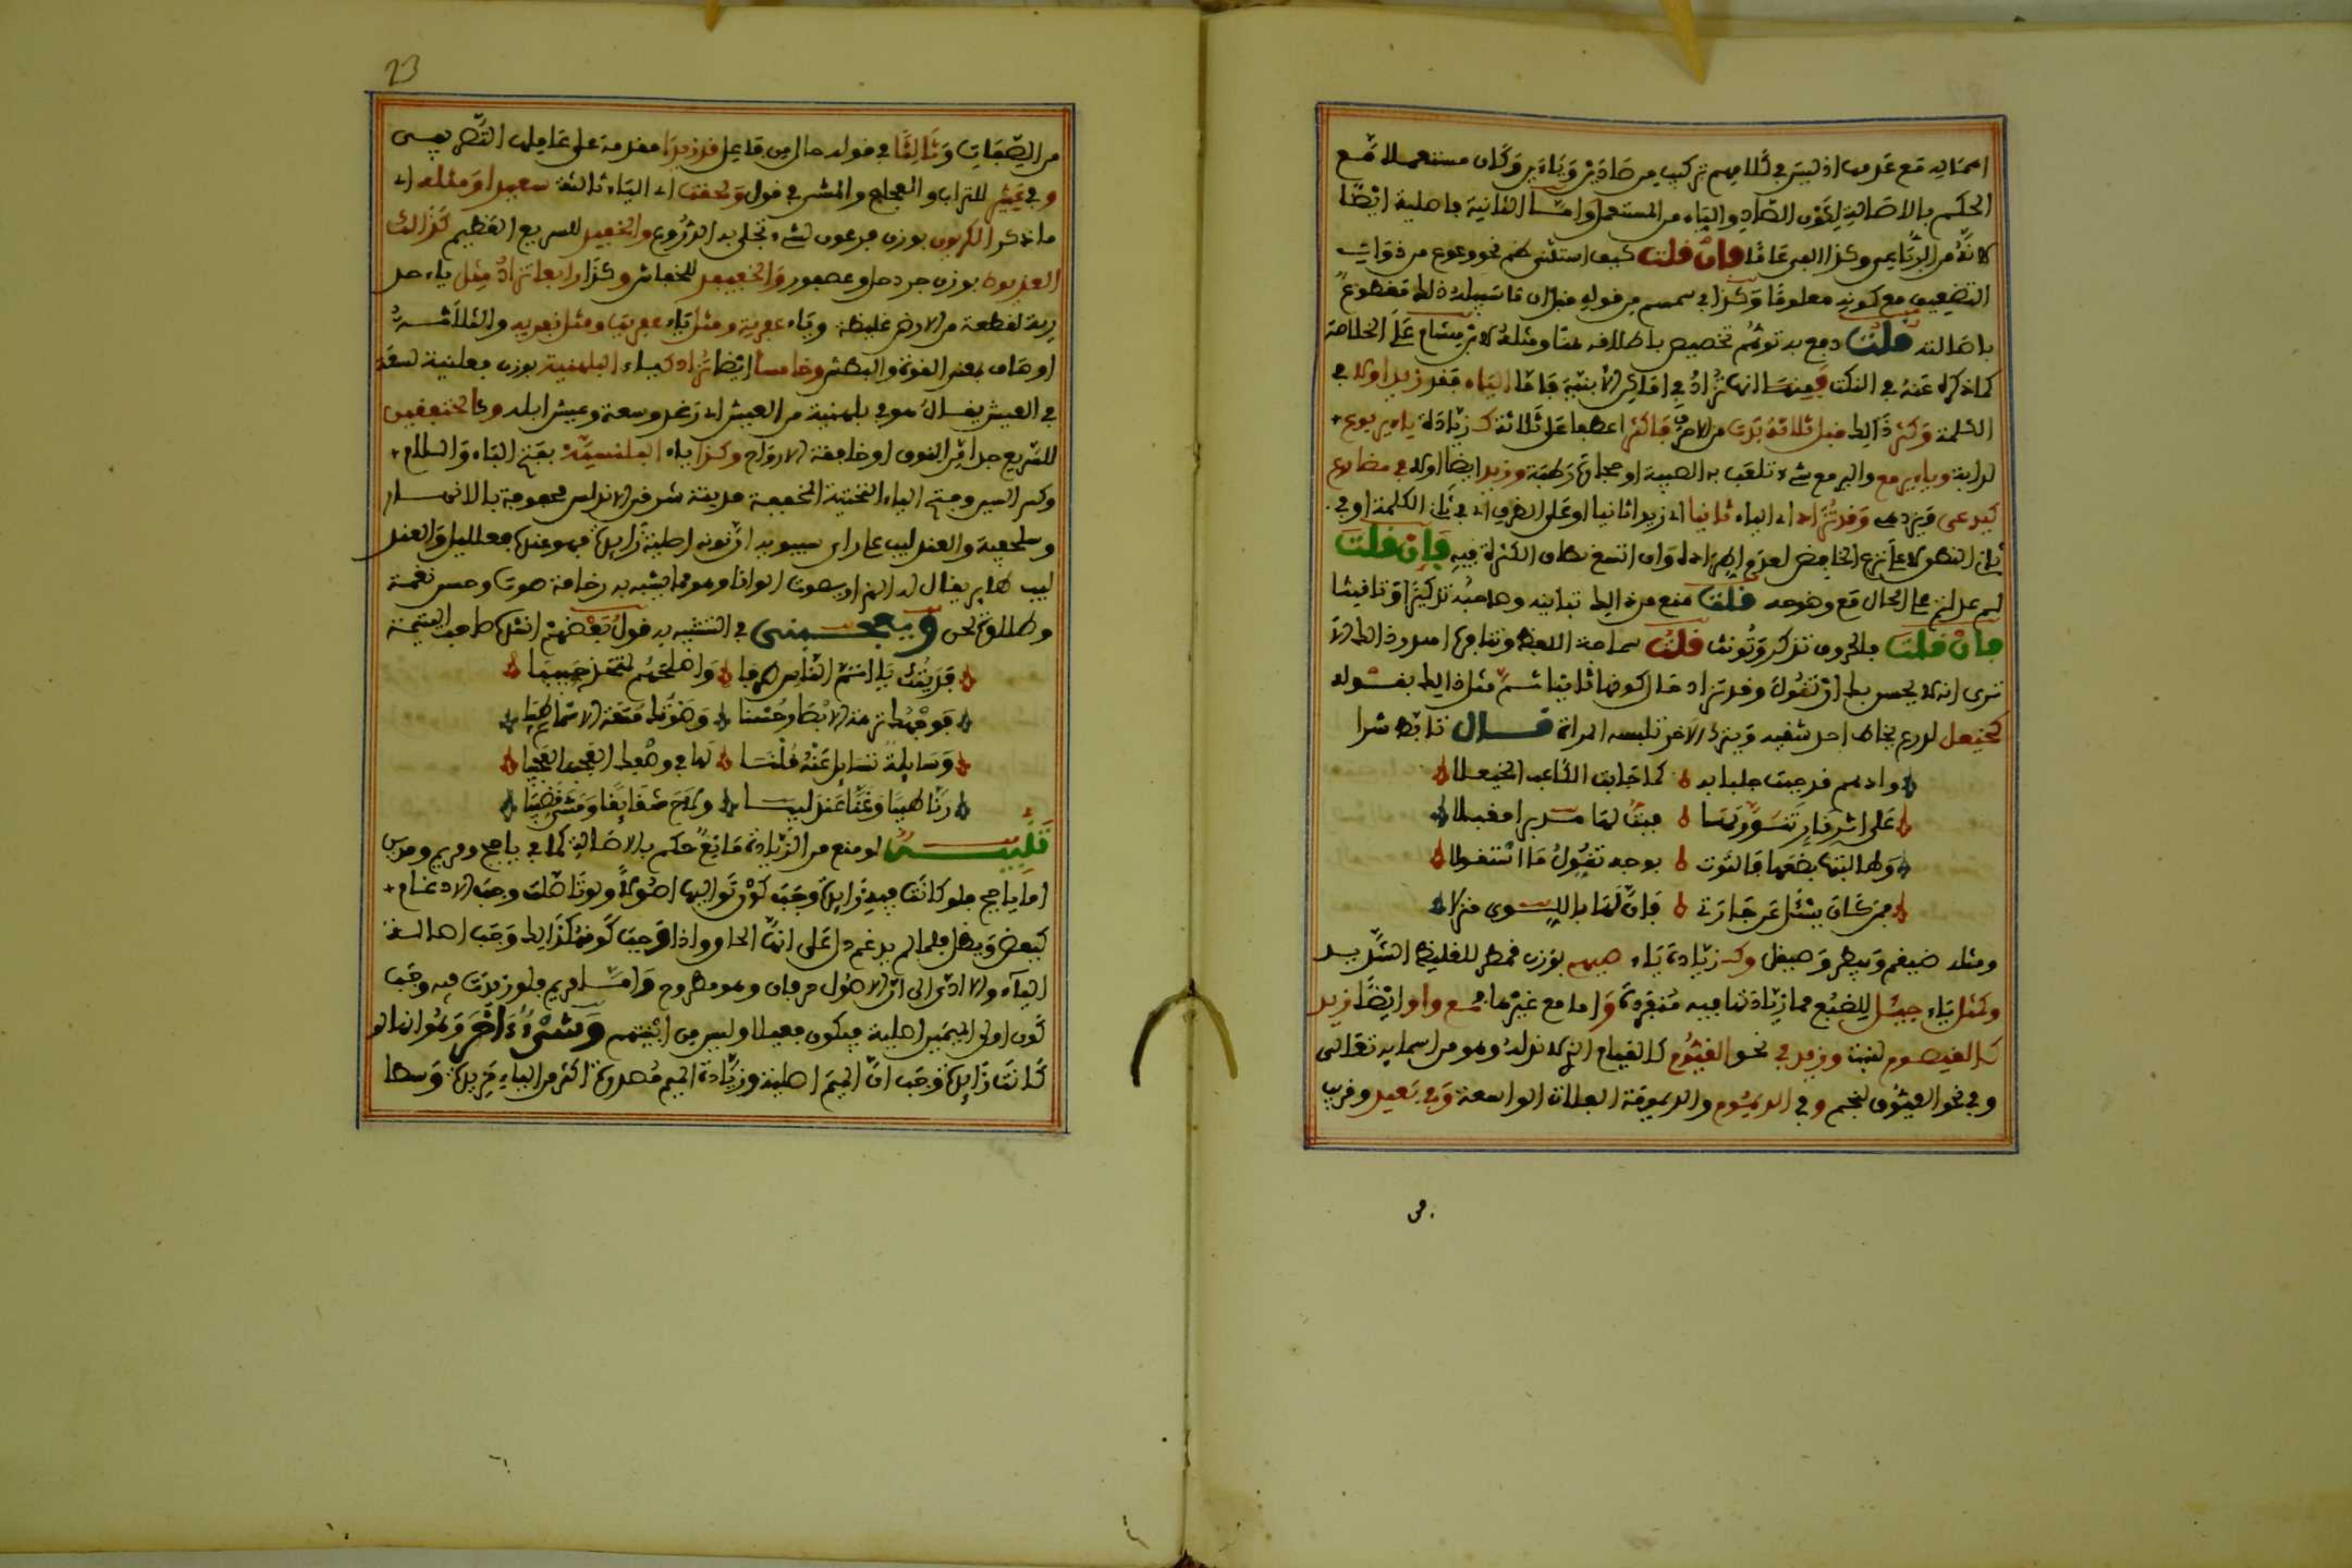 اهماله مع عدمها اذ ليس في كلامهم تركيب من صادين وياءين وكان مستعملا مع
الحكم بالاصالة لكون الصاد والياء من المستعمل واما الثانية فاصلية ايضا
لانه من الرباعي وكذا العين عاعا فان قلت كيف استثنى هم نحو وعوع من ذوات
التضعيف مع كونه معلوما وكذا في سمسم من قوله قبل ان تاسيسه ذلك مقطوع
باصالته قلت دفع به توهم تخصيص باطلاقه هنا ومثله لابن هشام على الخلاصة
كما ذكره عنه في النكت فمنها انها تزاد في اماكن الابنية فاما الياء فقد زيد اولا في
الكلمة وكثر ذلك قبل ثلاثة بدت من الاحرف فاكثر اعطها على ثلاثة كزيادة ياء يربوع
لدابة وياء يرمع واليرمع شيء تلعب به الصبية او حجارة رطبة وزيد ايضا اولا في مضارع
كيدعى ويزدهى وقد تزاد اي الياء ثانيا اي زيد ثانيا او على الظرف اي في ثاني الكلمة او في
ثاني النطق لا على نزع الخافض لعدم اطراده وان اتسع نطاق الكثرة فيه فان قلت
لم عدلتم عن الحال مع وضوحه قلت منع من ذلك تبانيه وصاحبه تذكيرا وتانيثا
فان قلت فالحروف تذكر وتؤنث قلت سماحة اللفظ وتنافرها اصل وذلك الا
ترى انه لا يحسن بك ان تقول وقد تزاد حال كونها ثانيا ثم مثل ذلك بقوله
كخيعل لدرع يخاط احد شقيه ويترك الاخر تلبسه المراة قال تابط شرا
وادهم قد جبت جلبابه كما جابت الكاعب الخيعلا
على اثر نار تنورتها فبت لها مدبرا مقبلا
وطالبتها بضعها فالتوت بوجه تغول فاستغولا
فمن كان يسئل عن جارتي فان لها باللوى منزلا
ومثله ضيغم وبيطر وصيقل وكزيادة ياء صيهم بوزن قمطر للغليظ الشديد
وكمثل ياء جيئل للضبع مما زيادتها فيه منفردة واما مع غيرها فمع واو ايضا زيد
كالقيصوم لنبت وزيد في نحو القيوم كالقيام الذي لا تزله وهو من اسمايه تعالى
وفي نحو العيوق لنجم وفي الديموم والديمومة الفلاة الواسعة وفي بعيد وقريب
في
23
من الصفات وثالثا في قوله حال من فاعل قد زيدا مقدمة على عاملها التصريفي
وفي عثير للتراب والعجاج والمشي في قول وحققت اي الياء ثالثة سعيدا ومثله اي
ما ذكر الكريون بوزن فرعون لشيء تجلى به الدروع والخفيدد للسريع الظليم كذلك
العذيوط بوزن جردحل وعصفور والخفيفد للخفاش وكذا رابعا تزاد مثل ياء حذ
رية لقطعة من الارض غليظة وياء عفرية ومثل ياء عفريت ومثل نفريت والثلاثة
اوصاف بمعنى القوة والبطش وخامسا ايضا تزاد كياء البلهنية بوزن فعلنية لسعة
في العيش يقال هو في بلهنية من العيش اي رغد وسعة وعيش ابله وكالخنفقيق
للسريع جدا من النوق او خافقة الارواح وكذا ياء البلنسية بفتح الباء واللام
وكسر السين وفتح الياء التحتية المخففة مدينة شرقي الاندلس محفوفة بالانهار
وسلحفية والعندليب على راي سيبويه ان نونه اصلية زايدة فهو عنده فعلليل والعندل
ليب طاير يقال له الهزار يصوت الوانا وهو مما يشبه به رخامة صوت وحسن نغمة
وطلاوة لحن ويعجبني في التشبيه به قول بعضهم انشدها صاحب اليتيمة
فديتك يا اتم الناس ظرفا واصلحهم لمتخذ حبيبا
فوجهك نزهة الابصار حسنا وصوتك متعة الاسماع طيبا
وسايلة تسايل عنك قلنا لها في وصفك العجب العجيبا
رنا ظبيا وغنى عندليبا ولاح شقايقا ومشى قضيبا
تنبيه لو منع من الزيادة مانع حكم بالاصالة كما في ياجج ومريم ومدين
اما ياجج فلو كانت فيه زايدة وجب كون تواليها اصولا ولو تاصلت وجب الادغام
كيعض ويظل فلما لم يدغم دل على انها الحاق واذا وجب كونها كذلك وجب اصالة
الياء والا ادى الى ان الاصول حرفان وهو مطروح واما مريم فلو زيدت فيه وجب
كون اولى الميمين اصلية فيكون فعيلا وليس من ابنيتهم وشيء اخر وهو انها لو
كانت زايدة وجب ان الميم اصلية وزيادة الميم مصدرة اكثر من الياء مزيدة وسطا